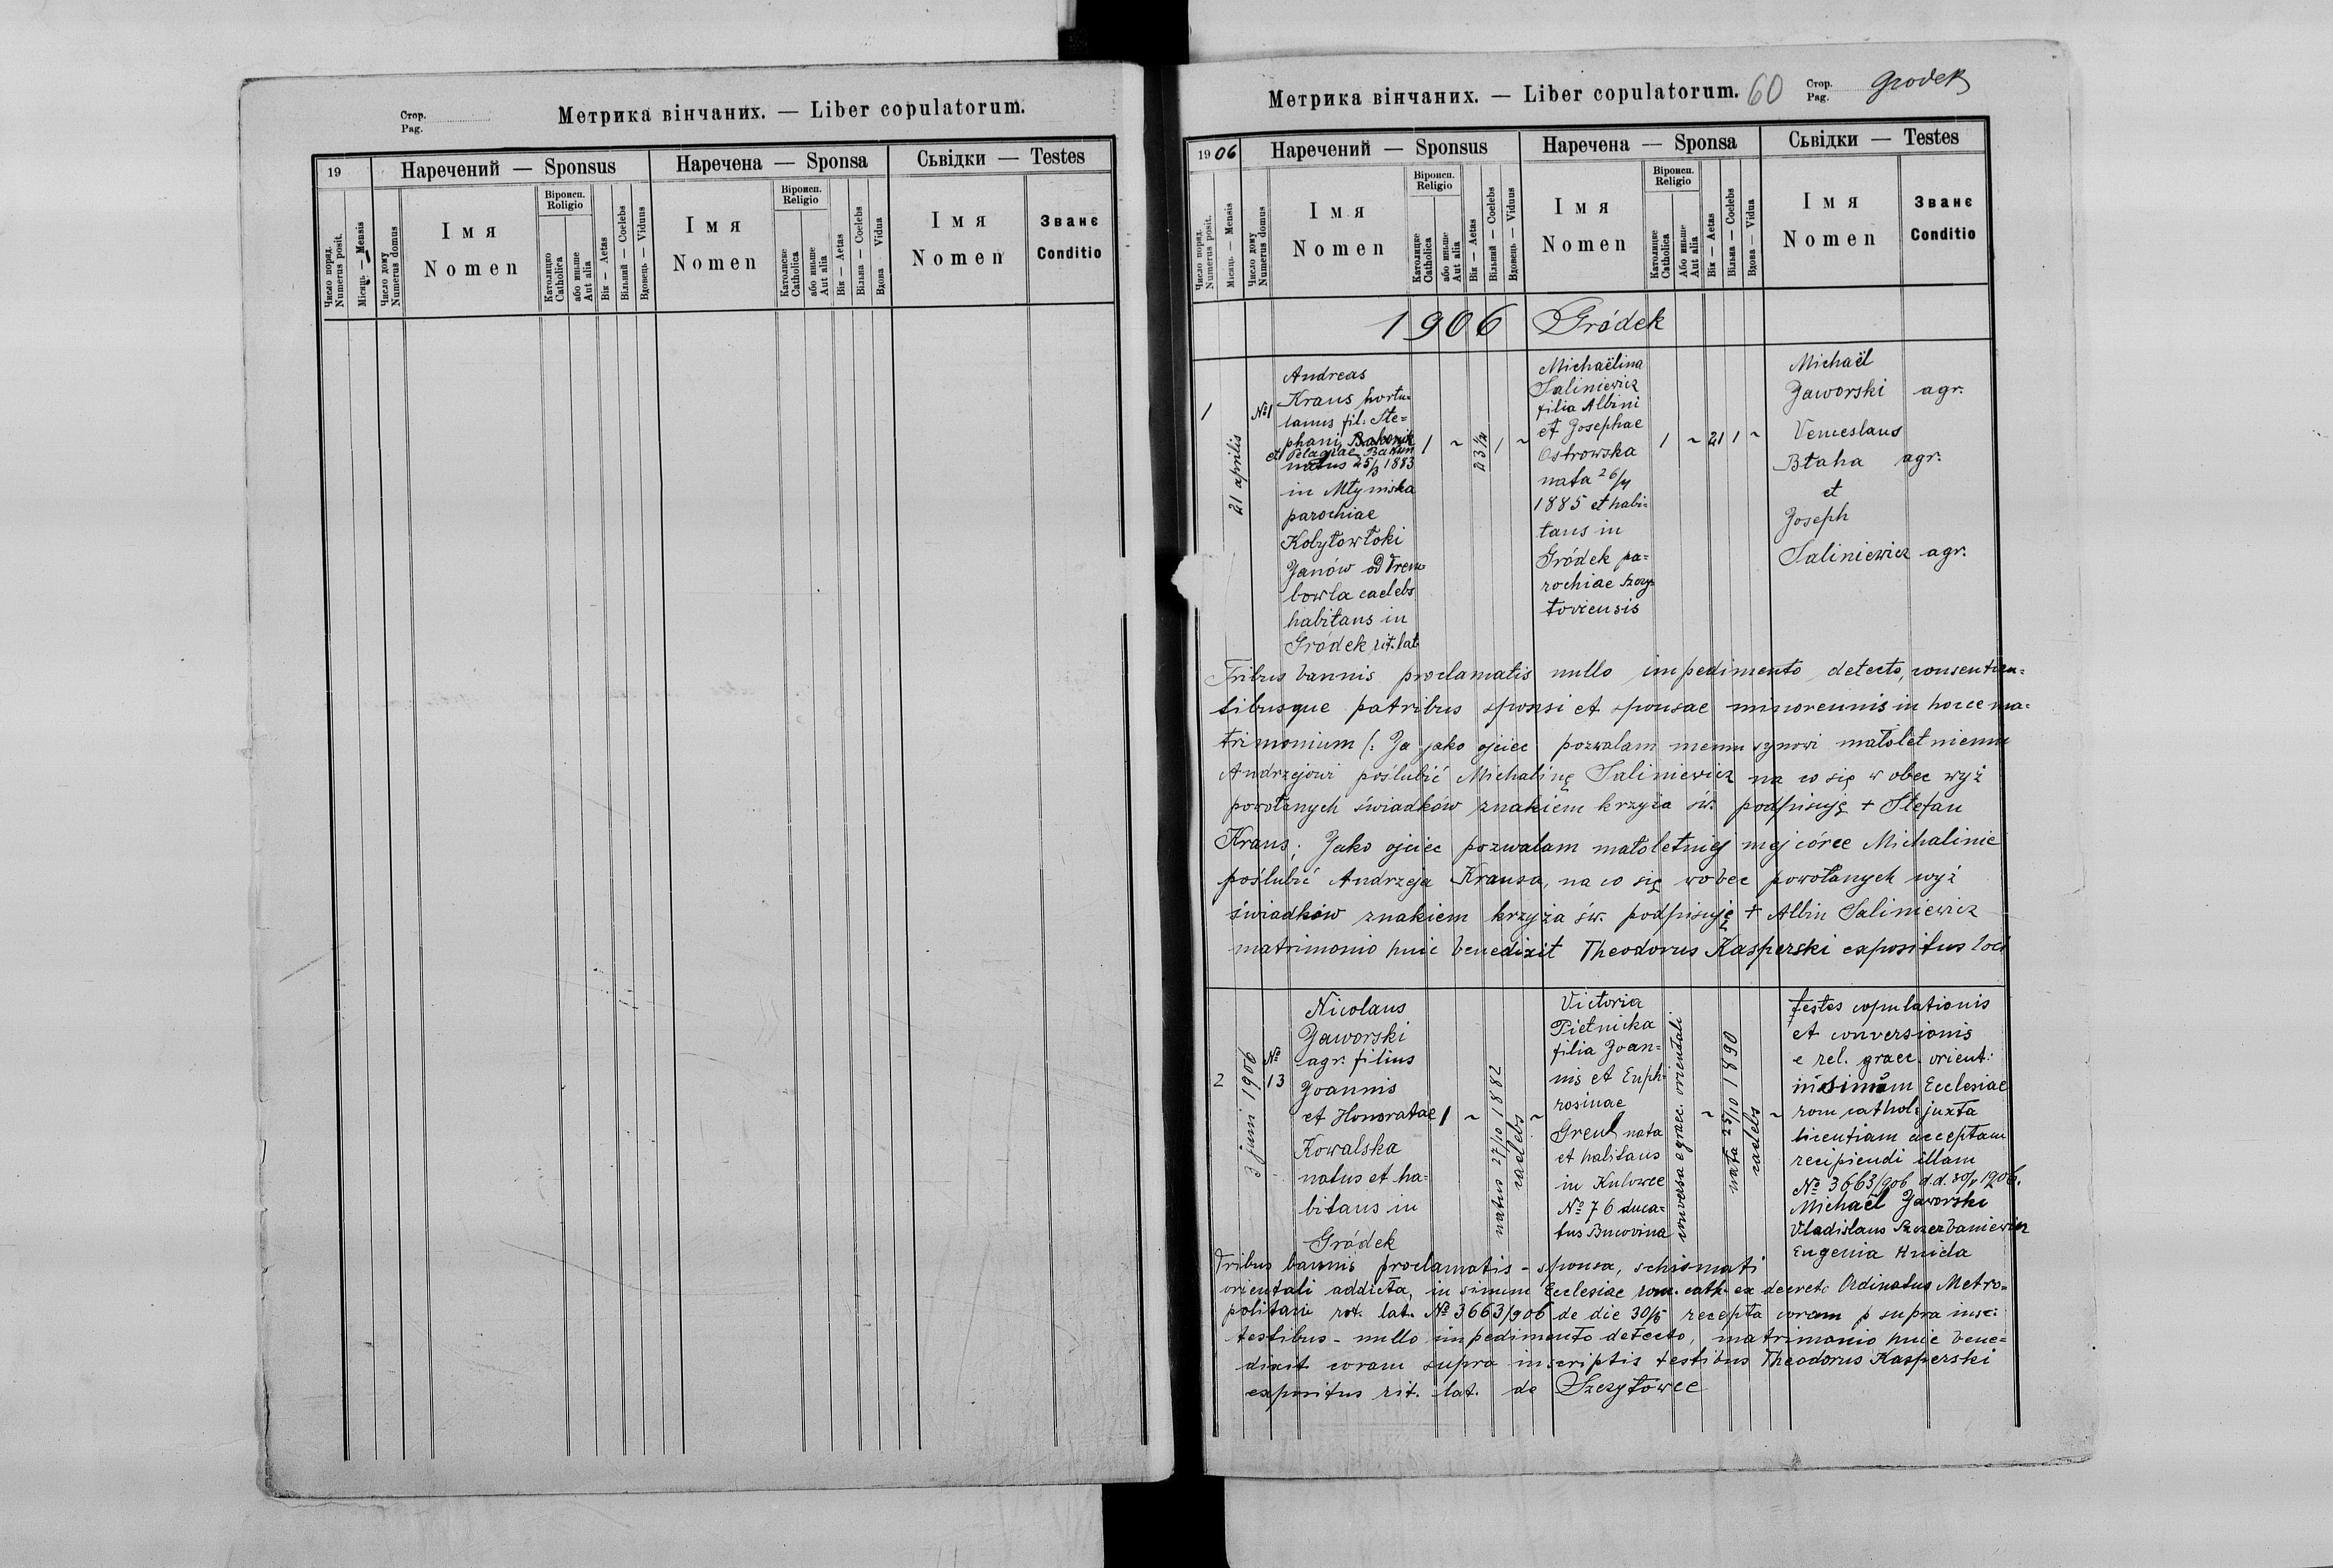 Стор.
Pag.
Метрика вінчаних. — Liber copulatorum.
19
Наречений — Sponsus
Наречена — Sponsa
Сьвідки — Testes
Число поряд.
Numerus posit.
Місяць — Mensis
Число дому
Numerus domus
Імя
Nomen
Віроисп.
Religio
Католицке
Catholica
або иньше
Aut alia
Вік — Aetas
Вільний — Coelebs
Вдовець — Viduus
Імя
Nomen
Віроисп.
Religio
Католицке
Catholica
або иньше
Aut alia
Вік — Aetas
Вільна — Coelebs
Вдова Vidua
Імя
Nomen
Званє
Conditio
Метрика вінчаних. — Liber copulatorum. 60
Стор.
Pag.
Grodek
1906
Наречений — Sponsus
Наречена — Sponsa
Сьвідки — Testes
Число поряд.
Numerus posit.
Місяць — Mensis
Число дому
Numerus domus
Імя
Nomen
Віроисп.
Religio
Католицке
Catholica
або иньше
Aut alia
Вік — Aetas
Вільний — Coelebs
Вдовець — Viduus
Імя
Nomen
Віроисп.
Religio
Католицке
Catholica
Або иньше
Aut alia
Вік — Aetas
Вільна — Coelebs
Вдова — Vidua
Імя
Nomen
Званє
Conditio
1906 Gródek
1
21 aprilis
№1
Andreas
Kraus hortu=
lanus fil. Ste=
phani
et Pelagiae
natus 25/3 1883
in Młyniska
parochiae
Kobyłowłoki
Janów od Trem=
bowla caelebs
habitans in
Gródek rit. lat.
1 ~ 23 1/12 1 ~
Michaëlina
Saliniewicz
filia Albini
et Josephae
Ostrowska
nata 26/4
1885 et habi=
tans in
Gródek pa=
rochiae Szczy=
toviensis
1 ~ 21 1 ~
Michaël
Jaworski agr.
Venceslaus
Błaha agr.
et
Joseph
Saliniewicz agr.
Tribus bannis proclamatis nullo impedimento detecto, consentien=
tibusque patribus sponsi et sponsae minorennis in hocce ma=
trimonium /: Ja jako ojciec pozwalam memu synowi małoletniemu
Andrzejowi poślubić Michalinę Saliniewicz na co się w obec wyż
powołanych świadków znakiem krzyża św. podpisuję + Stefan
Kraus; Jako ojciec pozwalam małoletniej mej córce Michalinie
poślubić Andrzeja Krausa, na co się wobec powołanych wyż
świadków znakiem krzyża św. podpisuję + Albin Saliniewicz
matrimonio huic benedixit Theodorus Kasperski expositus loci
2
3 juni 1906
№
13
Nicolaus
Jaworski
agr. filius
Joannis
et Honoratae
Kowalska
natus et ha=
bitans in
Gródek
1 ~
natus 27/10 1882
caelebs
~
Victoria
Pietnicka
filia Joan=
nis et Euph=
rosinae
Greul nata
et habitans
in Kulowce
№ 76 duca=
tus Bucovina
conversa e graec. orientali
~
nata 25/10 1890
caelebs
~
testes copulationis
et conversionis
e rel. graec. orient:
in sinum Ecclesiae
rom cathol: juxta
licentiam acceptam
recipiendi illam
№ 3663/906 d.d. 30/5 1906.
Michaël Jaworski
Vladislaus Szczerbaniewicz
Eugenia Hnida
Tribus bannis proclamatis - sponsa, schismati
orientali addicta, in sinum Ecclesiae rom. cath. ex decreto Ordinatus Metro=
politani rit. lat. № 3663/906 de die 30/5 recepta coram p supra insc:
testibus - nullo impedimento detecto, matrimonio huic bene=
dixit coram supra inscriptis testibus Theodorus Kasperski
expositus rit. lat. de Szczytowce